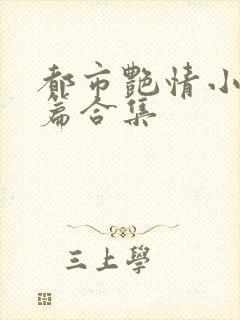 都市艷情小
篇合集
三上學